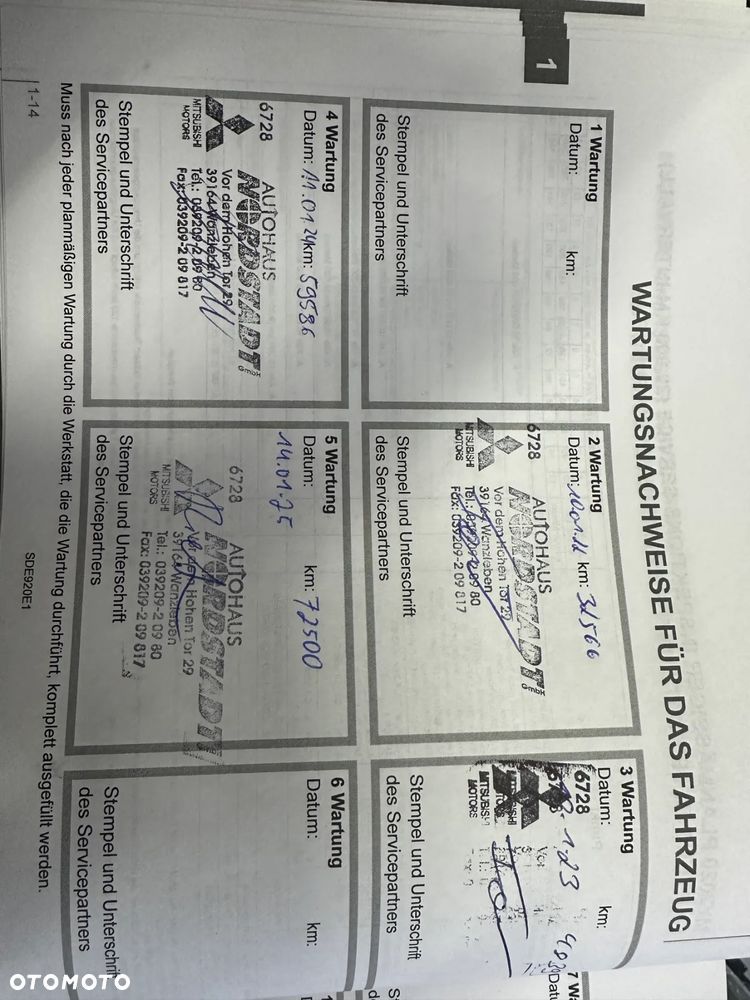 1
WARTUNGSNACHWEISE FÜR DAS FAHRZEUG
1 Wartung
Datum: km:
Stempel und Unterschrift
des Servicepartners
2 Wartung
Datum: km: 31566
6728
MITSUBISHI
MOTORS
AUTOHAUS
NORDSTADT
GmbH
Vor dem Hohen Tor 29
39164 Wanzleben
Tel.: 039209-2 09 80
Fax: 039209-2 09 817
Stempel und Unterschrift
des Servicepartners
3 Wartung
Datum: km:
6728
MITSUBISHI
MOTORS
Stempel und Unterschrift
des Servicepartners
4 Wartung
Datum: 11.01.24 km: 59586
6728
MITSUBISHI
MOTORS
AUTOHAUS
NORDSTADT
GmbH
Vor dem Hohen Tor 29
39164 Wanzleben
Tel.: 039209-2 09 80
Fax: 039209-2 09 817
Stempel und Unterschrift
des Servicepartners
5 Wartung
Datum: km: 72500
14.01.25
6728
MITSUBISHI
MOTORS
AUTOHAUS
NORDSTADT
GmbH
Vor dem Hohen Tor 29
39164 Wanzleben
Tel.: 039209-2 09 80
Fax: 039209-2 09 817
Stempel und Unterschrift
des Servicepartners
6 Wartung
Datum: km:
Stempel und Unterschrift
des Servicepartners
Muss nach jeder planmäßigen Wartung durch die Werkstatt, die die Wartung durchführt, komplett ausgefüllt werden.
1-14
SDE920E1
OTOMOTO